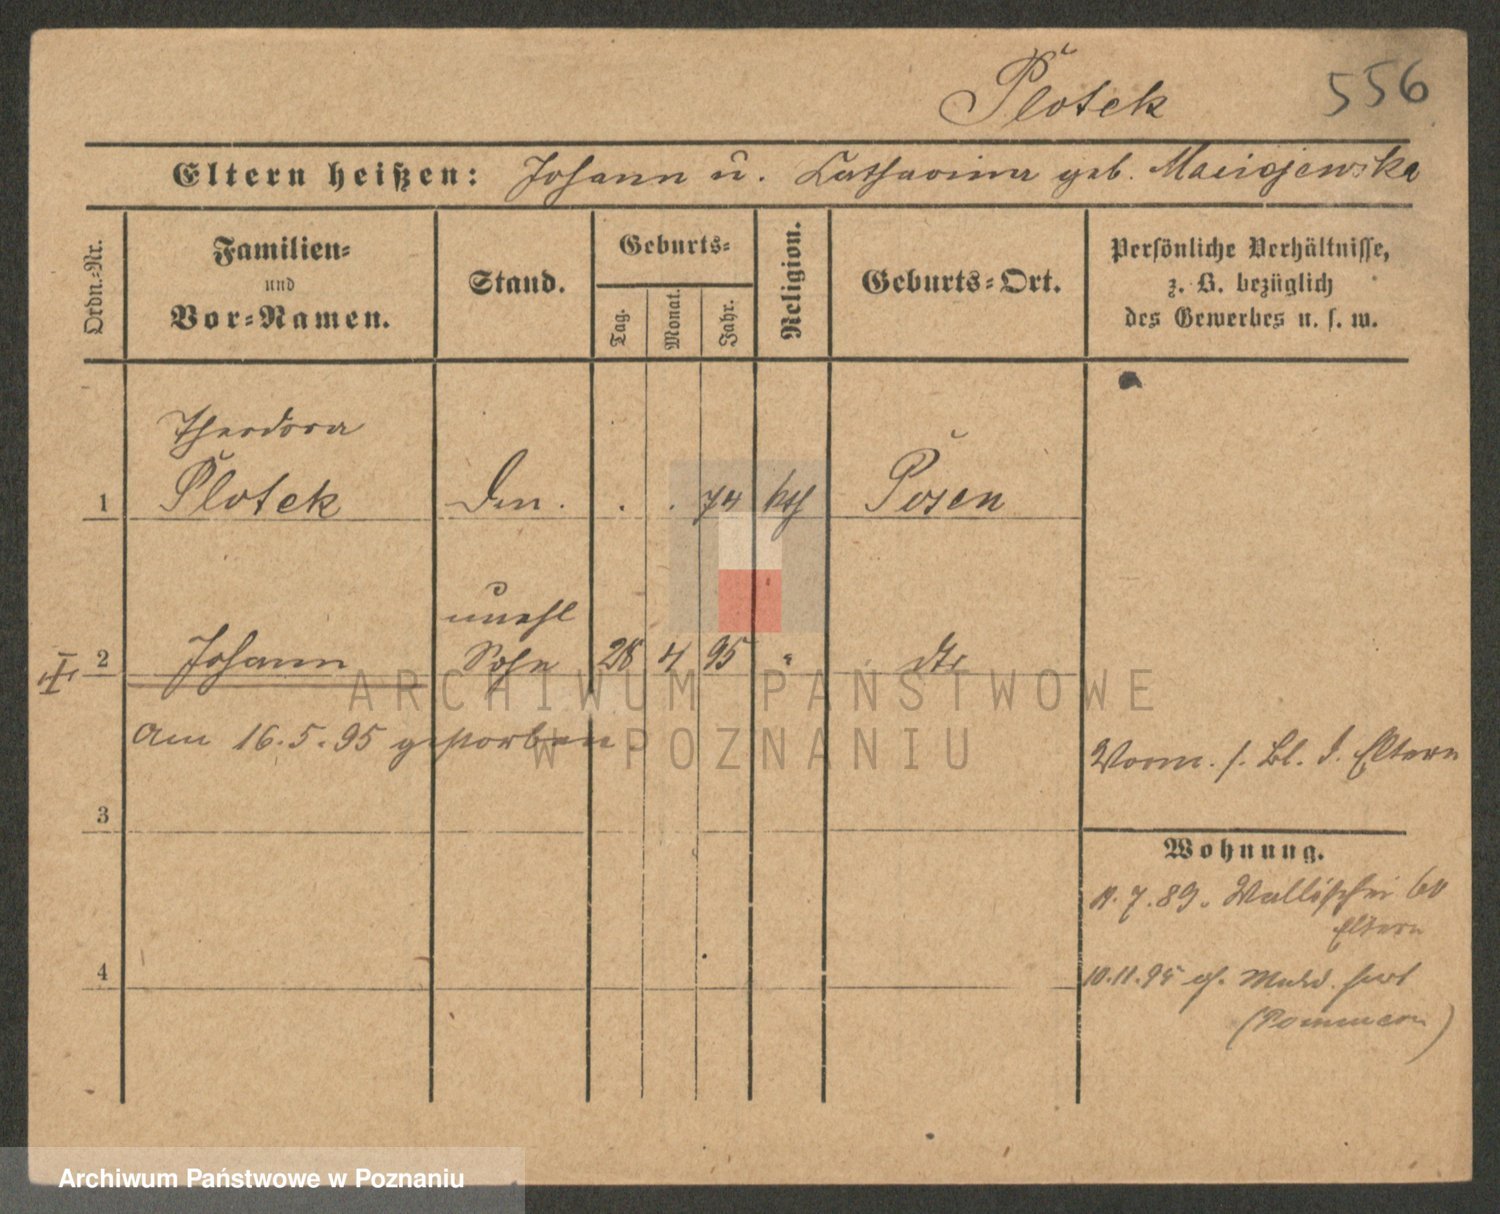 Plotek
556
Eltern heißen: Johann u. Catharina geb. Maciejewska
Ordn.-Nr.
Familien-
und
Vor-Namen.
Stand.
Geburts-
Tag.
Monat.
Jahr.
Religion.
Geburts-Ort.
Persönliche Verhältnisse,
z. B. bezüglich
des Gewerbes u. s. w.
Theodora
1 Plotek . . 74 kth Posen
unehl
2 Johann Sohn 28 4 95 " dto
Am 16.5.95 gestorben.
Vorm. s. Bl. d. Eltern
3
Wohnung.
11.7.89. Wallischei
Eltern
4
10.11.95
(Pommern)
ARCHIWUM PAŃSTWOWE
W POZNANIU
Archiwum Państwowe w Poznaniu